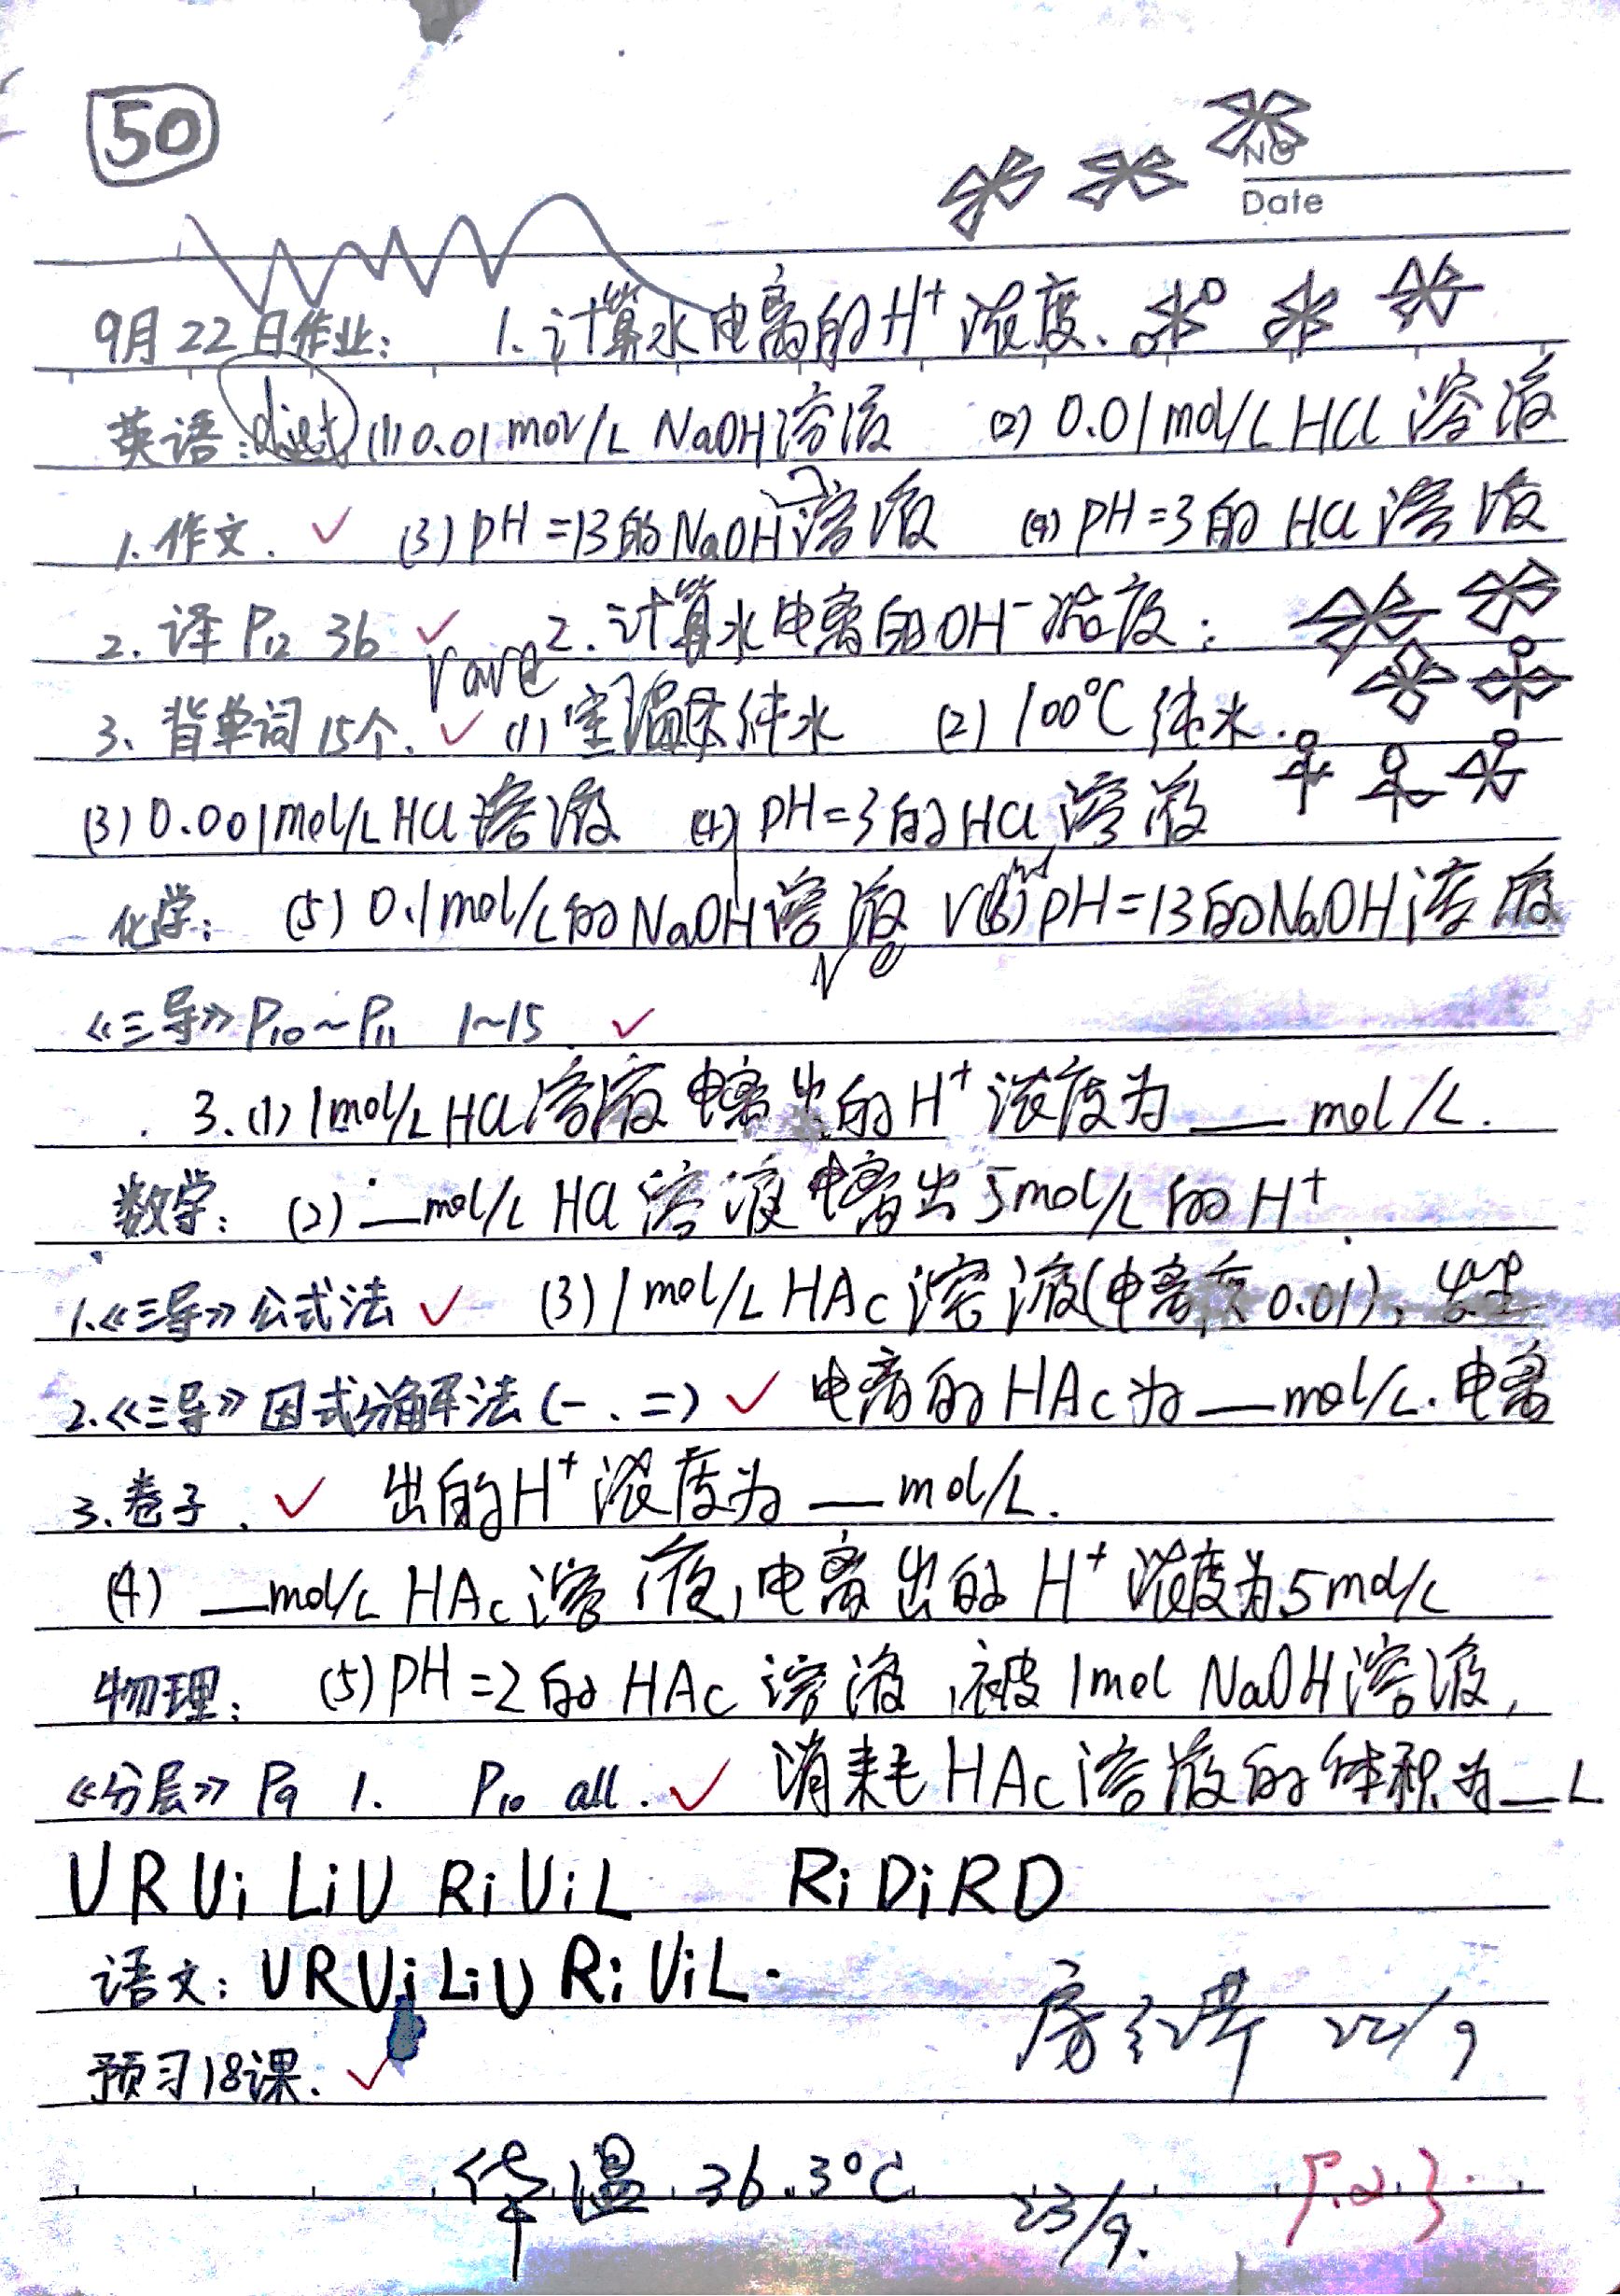 50
NO
Date
9月22日作业: 1.计算水电离的H⁺浓度.
英语: dict (1)0.01mol/L NaOH溶液 (2) 0.01mol/L HCl 溶液
1.作文. ✓ (3)pH=13的NaOH溶液 (4)pH=3的HCl溶液
2.译 P₁₂ 3b ✓ 2.计算水电离的OH⁻浓度:
3.背单词15个. ✓ (1)室温下纯水 (2)100℃纯水.
(3)0.001mol/L HCl溶液 (4)pH=3的HCl溶液
化学: (5)0.1mol/L的NaOH溶液 (6)pH=13的NaOH溶液
《三导》P₁₀~P₁₁ 1~15. ✓
3.(1)1mol/L HCl溶液电离出的H⁺浓度为__mol/L.
数学: (2)__mol/L HCl溶液电离出5mol/L的H⁺
1.《三导》公式法 ✓ (3)1mol/L HAc溶液(电离度0.01),发生
2.《三导》因式分解法(一、二) ✓ 电离的HAc为__mol/L.电离
3.卷子. ✓ 出的H⁺浓度为__mol/L.
(4)__mol/L HAc溶液,电离出的H⁺浓度为5mol/L
物理: (5)pH=2的HAc溶液,被1mol NaOH溶液,
《分层》P₉ 1. P₁₀ all. ✓ 消耗HAc溶液的体积为__L
URUiLiURiUiL RiDiRD
语文: URUiLiURiUiL.
预习18课. ✓ 22/9
体温 36.3℃ 23/9.